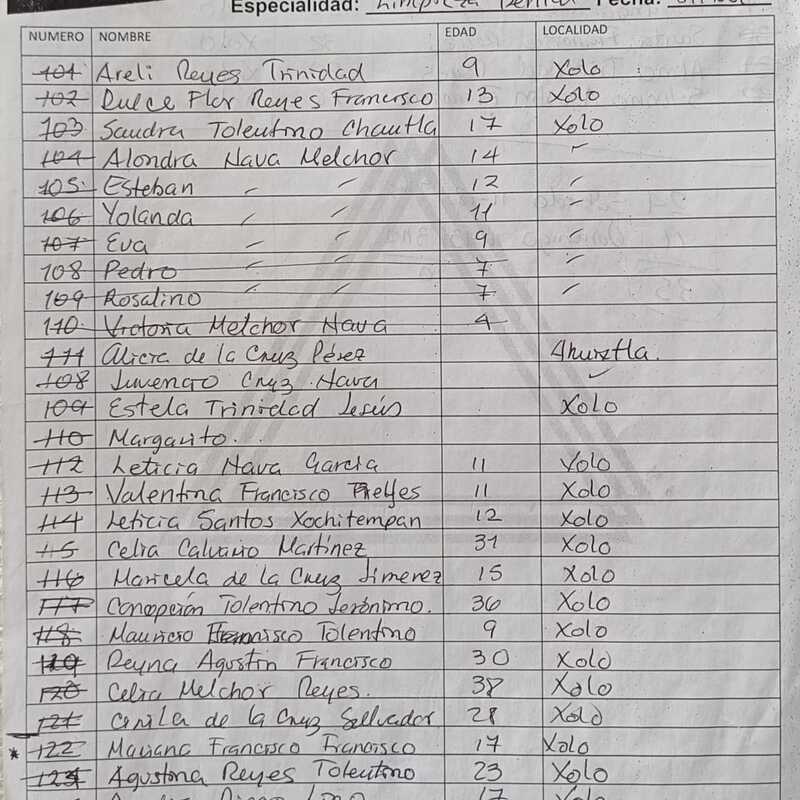 Especialidad: Limpieza Dental Fecha:
NUMERO NOMBRE EDAD LOCALIDAD
101 Areli Reyes Trinidad 9 Xolo
102 Dulce Flor Reyes Francisco 13 Xolo
103 Sandra Tolentino Chautla 17 Xolo
104 Alondra Nava Melchor 14 "
105 Esteban " " 12 "
106 Yolanda " " 11 "
107 Eva " " 9 "
108 Pedro " " 7 "
109 Rosalino " " 7 "
110 Victoria Melchor Nava 4
111 Alicia de la Cruz Pérez Ahuextla.
108 Juvencio Cruz Nava
109 Estela Trinidad Jesús Xolo
110 Margarito.
112 Leticia Nava Garcia 11 Xolo
113 Valentina Francisco Reyes 11 Xolo
114 Leticia Santos Xochitempan 12 Xolo
115 Celia Calvario Martínez 31 Xolo
116 Maricela de la Cruz Jimenez 15 Xolo
117 Concepción Tolentino Jerónimo. 36 Xolo
118 Mauricio Francisco Tolentino 9 Xolo
119 Reyna Agustin Francisco 30 Xolo
120 Celia Melchor Reyes. 38 Xolo
121 de la Cruz Sallvador 28 Xolo
* 122 Mariana Francisco Francisco 17 Xolo
123 Agustina Reyes Tolentino 23 Xolo
17 Xolo